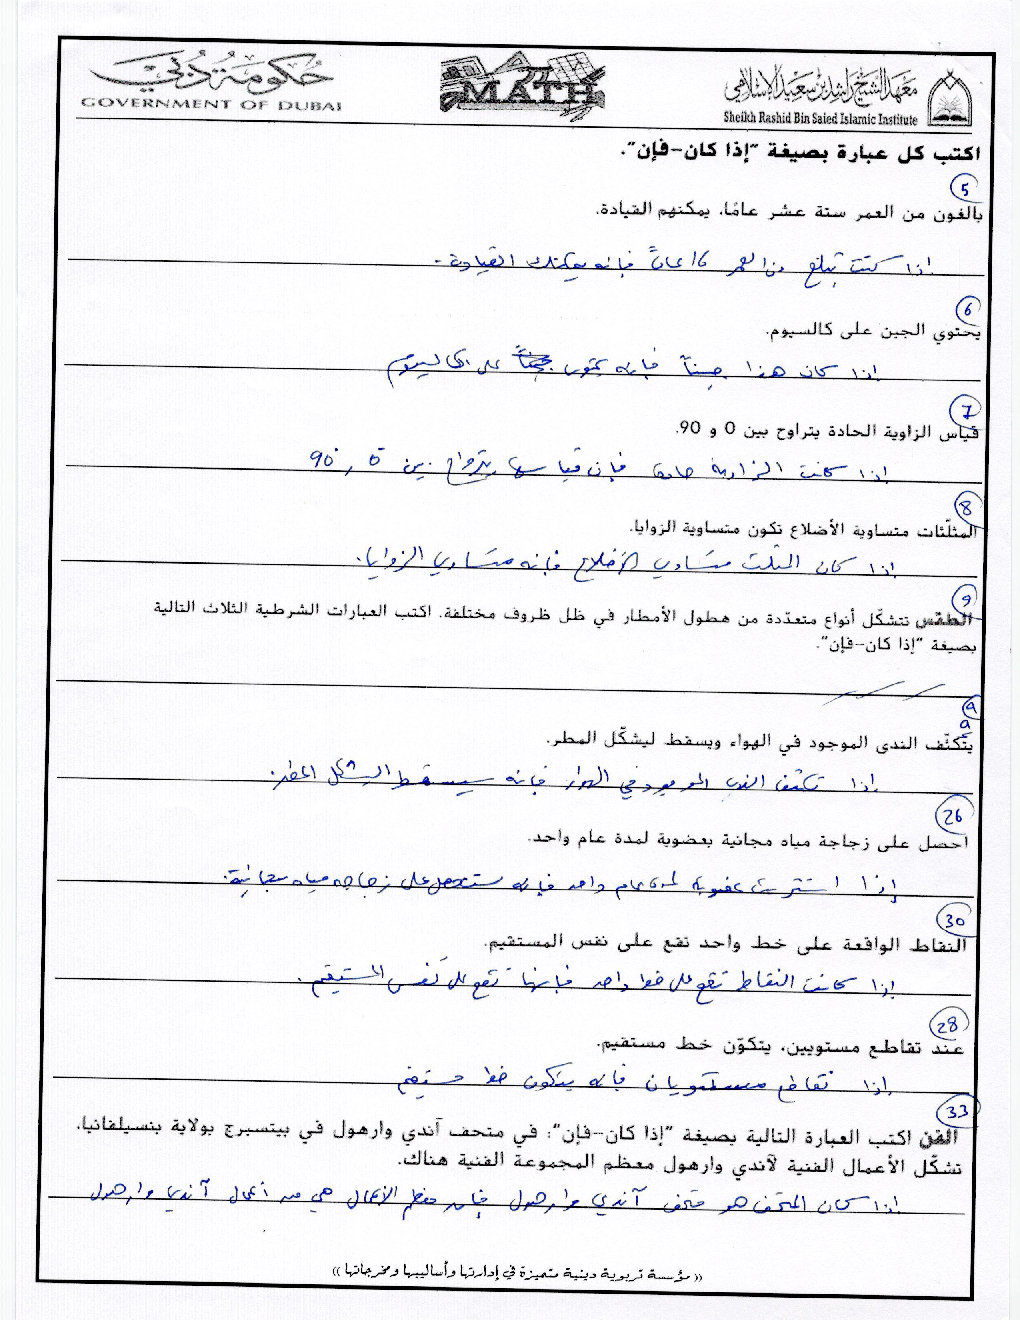 حكومة دبي
GOVERNMENT OF DUBAI
MATH
معهد الشيخ راشد بن سعيد الإسلامي
Sheikh Rashid Bin Saied Islamic Institute
اكتب كل عبارة بصيغة "إذا كان-فإن".
5
بالغون من العمر ستة عشر عامًا، يمكنهم القيادة.
اذا كنت تبلغ من العمر 16 عاماً فإنه يمكنك القيادة.
6
يحتوي الجبن على كالسيوم.
اذا كان هذا جبناً فإنه يحتوي على الكالسيوم
7
قياس الزاوية الحادة يتراوح بين 0 و 90.
إذا كانت الزاوية حادة فإن قياسها يتراوح بين 0° و 90°
8
المثلّثات متساوية الأضلاع تكون متساوية الزوايا.
إذا كان المثلث متساوي الأضلاع فإنه متساوي الزوايا.
9
الطقس تتشكّل أنواع متعدّدة من هطول الأمطار في ظل ظروف مختلفة. اكتب العبارات الشرطية الثلاث التالية
بصيغة "إذا كان-فإن".
9
a
يتكثّف الندى الموجود في الهواء ويسقط ليشكّل المطر.
إذا تكثف الندى الموجود في الهواء فإنه سيسقط ليشكل المطر.
26
احصل على زجاجة مياه مجانية بعضوية لمدة عام واحد.
إذا اشتريت عضوية لمدة عام واحد فإنه ستحصل على زجاجه مياه مجانية.
30
النقاط الواقعة على خط واحد تقع على نفس المستقيم.
إذا كانت النقاط تقع على خط واحد فإنها تقع على نفس المستقيم.
28
عند تقاطع مستويين، يتكوّن خط مستقيم.
إذا تقاطع مستويان فإنه يتكون خط مستقيم
33
الفن اكتب العبارة التالية بصيغة "إذا كان-فإن": في متحف آندي وارهول في بيتسبرج بولاية بنسيلفانيا،
تشكّل الأعمال الفنية لآندي وارهول معظم المجموعة الفنية هناك.
اذا كان المتحف هو متحف آندي وارهول فإن معظم الأعمال هي من أعمال آندي وارهول
(( مؤسسة تربوية دينية متميزة في إدارتها وأساليبها ومخرجاتها ))